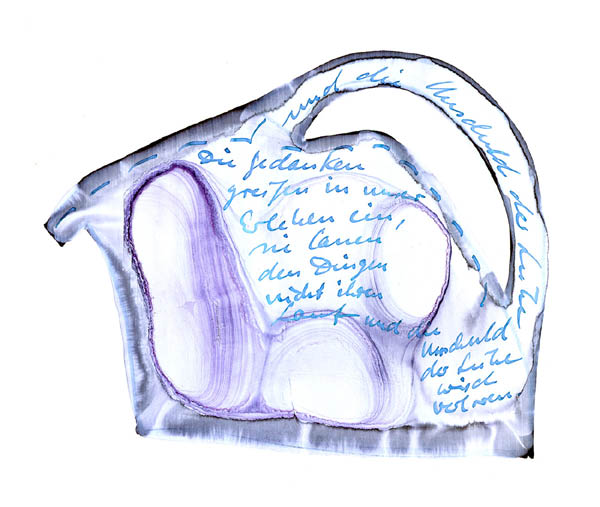 und die Unschuld der Liebe
Die Gedanken
greifen in unser
Erleben ein,
sie lassen
den Dingen
nicht ihren
Lauf und die
Unschuld
der Liebe
wird
verloren